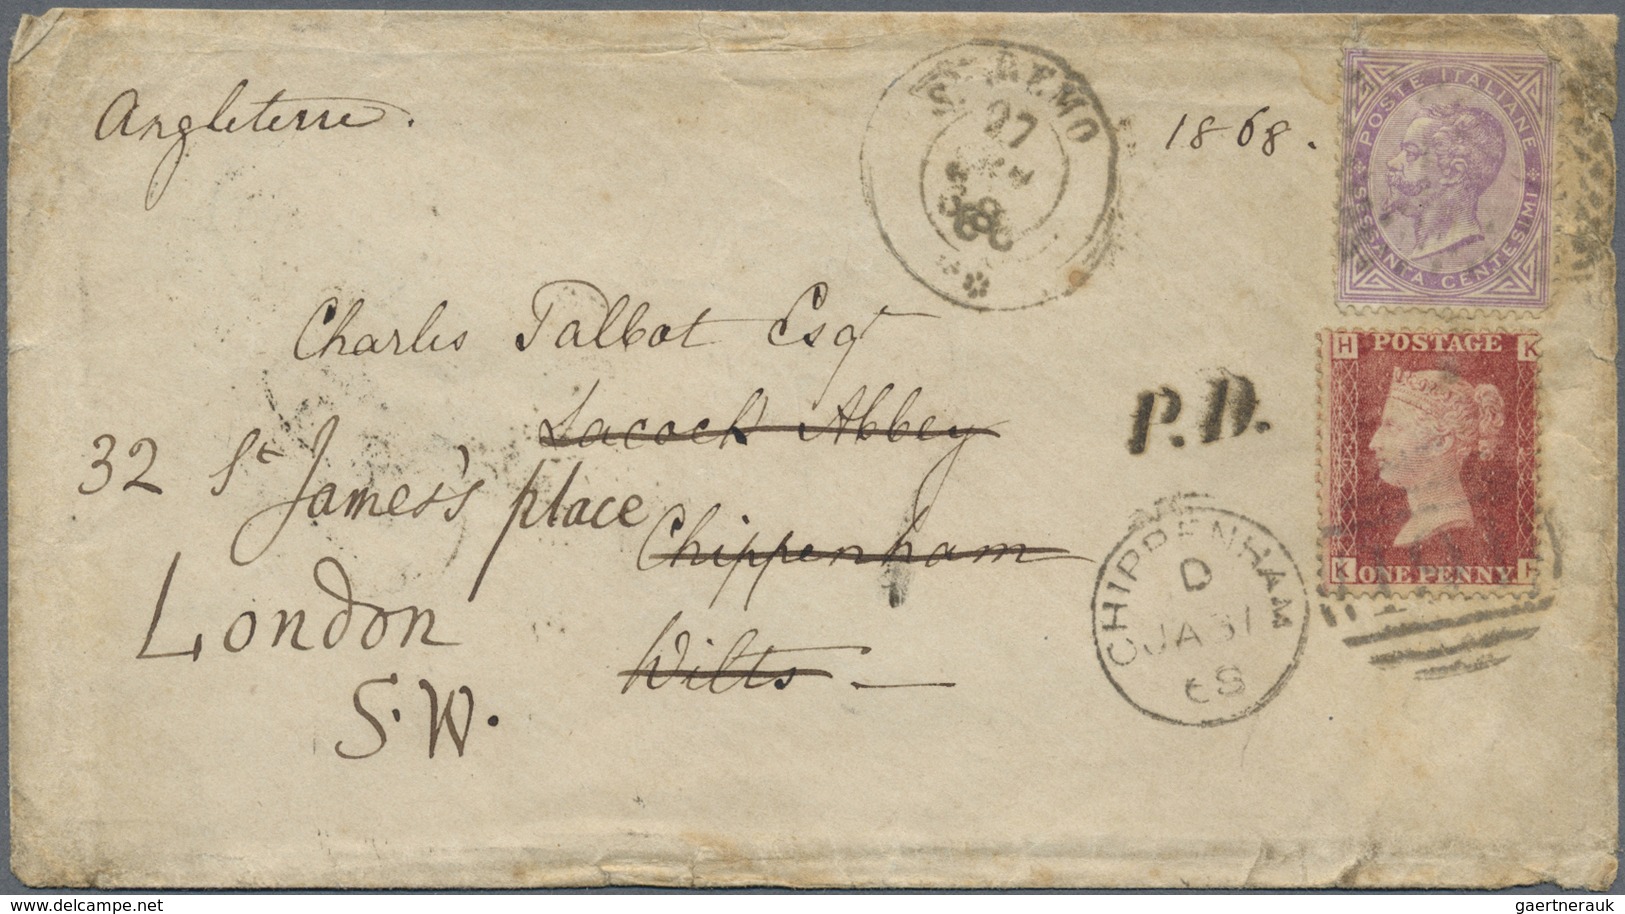 Angleterre.
S. REMO
27
68
1868.
POSTE ITALIANE
SESSANTA CENTESIMI
Charles Talbot Esqr
Lacock Abbey
Chippenham
Wilts
32 St James's place
London
S.W.
P.D.
H POSTAGE K
K ONE PENNY H
CHIPPENHAM
D
JA 31
68
www.delcampe.net
gaertnerauk